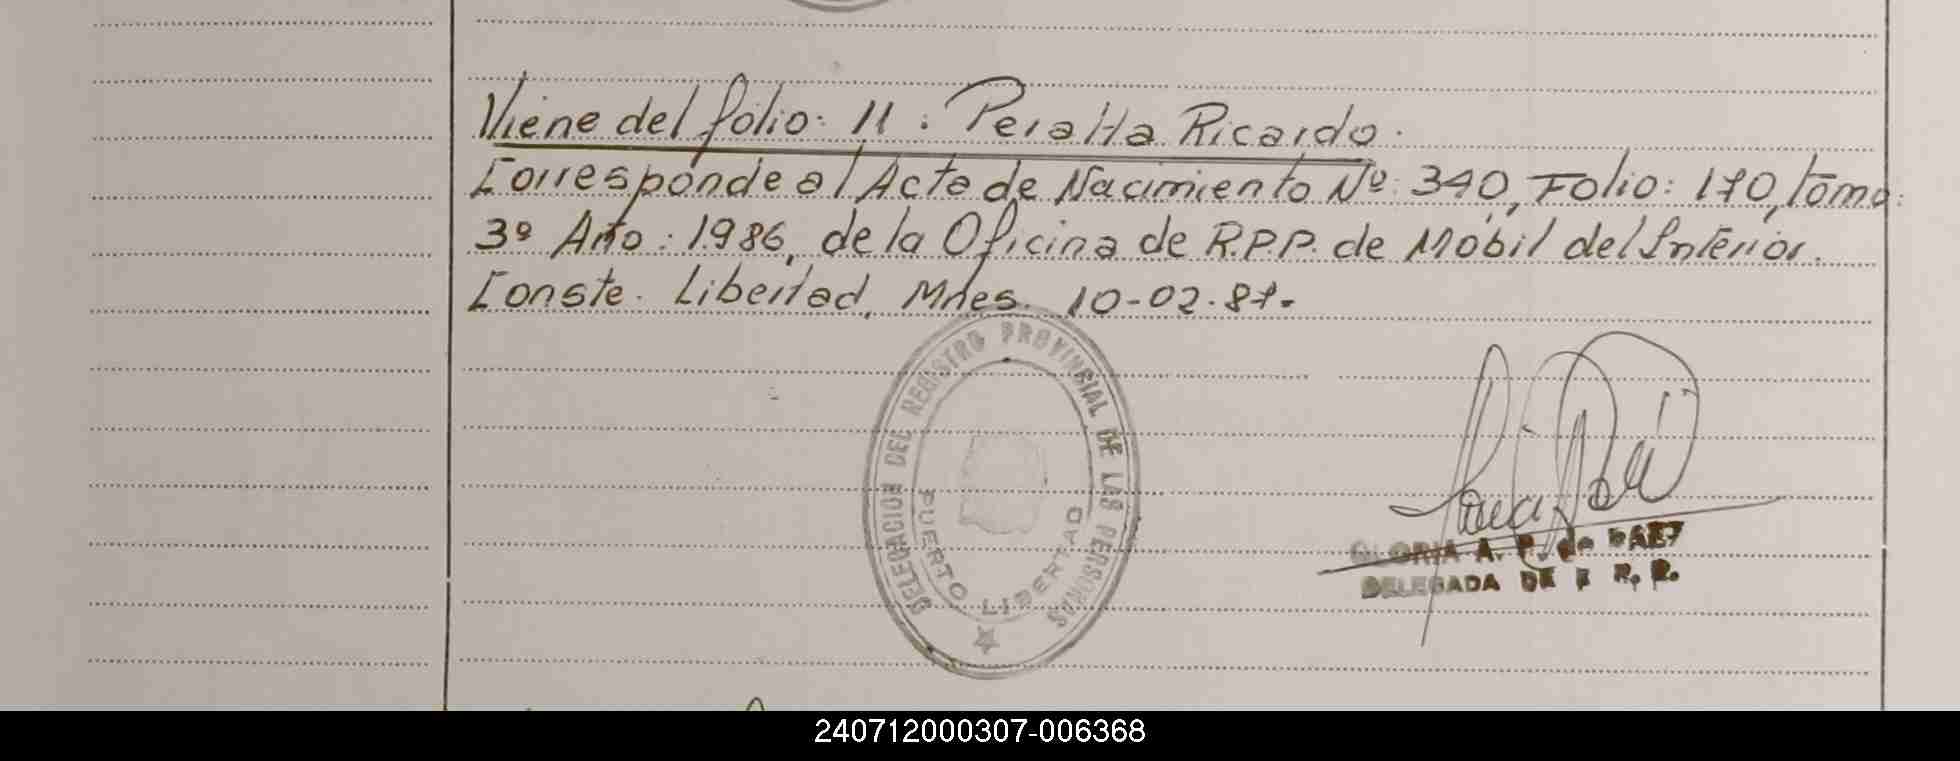 Viene del folio: 11: Peralta Ricardo.
Corresponde al Acta de Nacimiento Nº: 340, Folio: 170, tomo:
3º Año: 1986, de la Oficina de R.P.P. de Móbil del Interior.
Conste. Libertad, Mnes. 10-02-87.-
DELEGACION DEL REGISTRO PROVINCIAL DE LAS PERSONAS
PUERTO LIBERTAD
GLORIA A. P. de PAEZ
DELEGADA DE R. P.
240712000307-006368